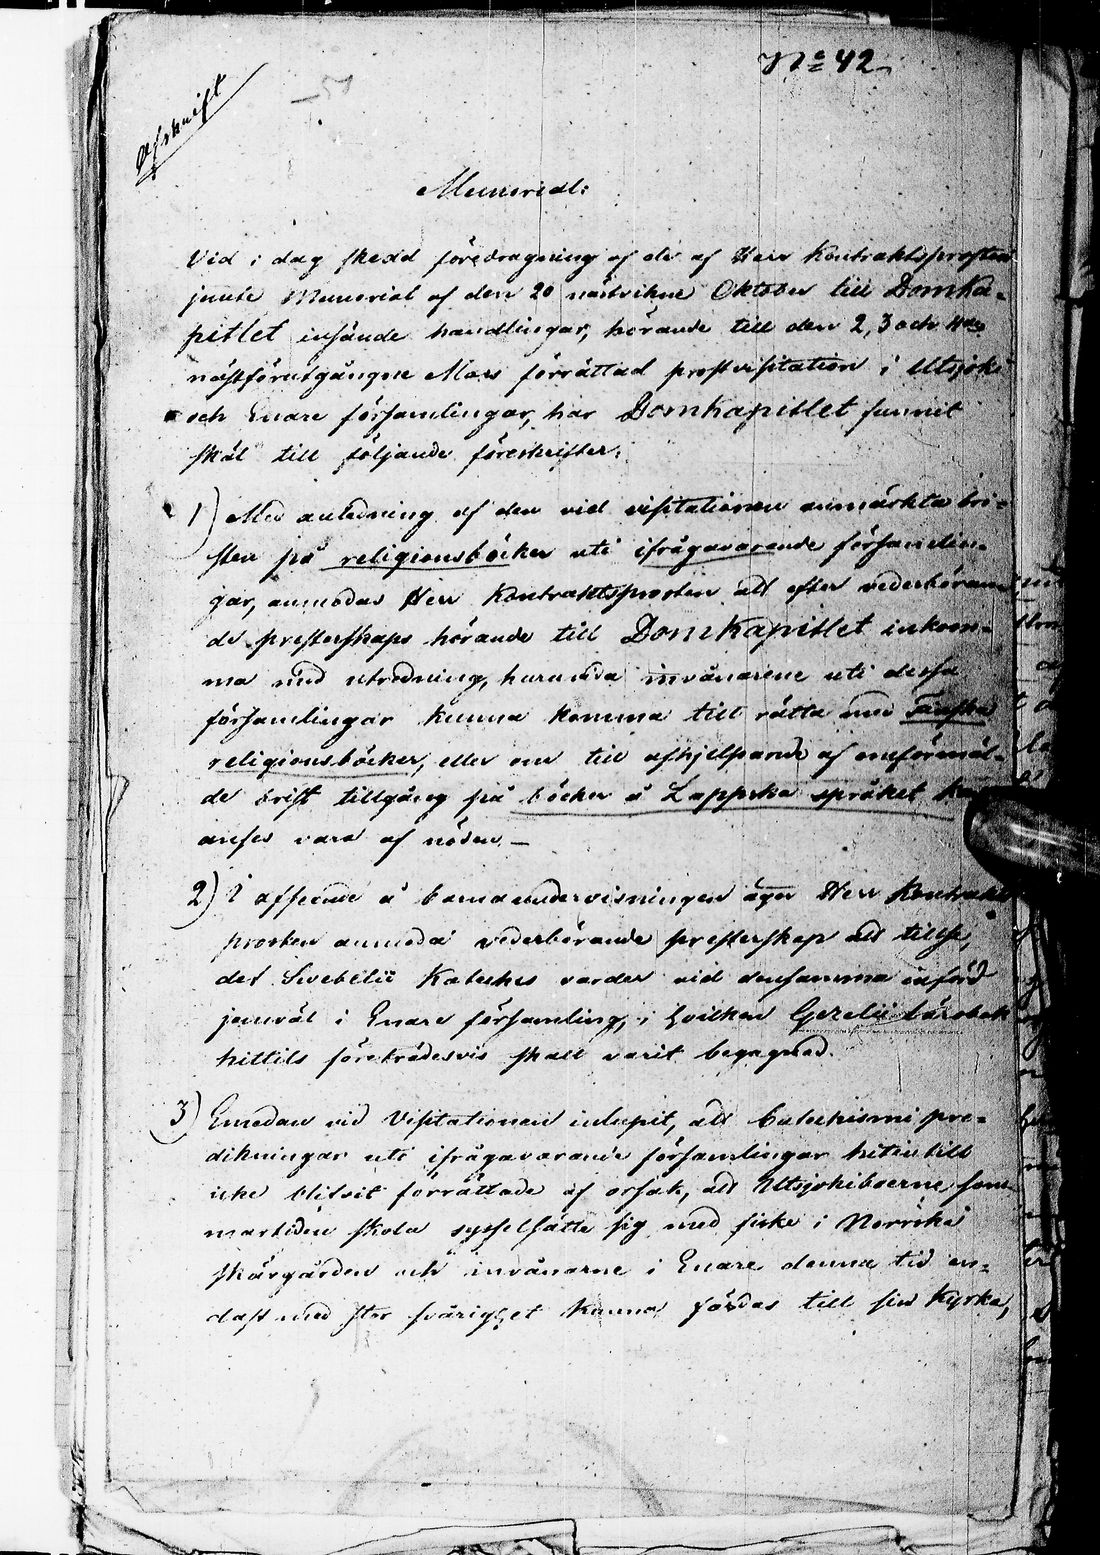 No 42
Afskrift
Memorial:
Vid i dag skedd föredragning af de af Herr Kontraktsprosten
jemte Memorial af den 20 nästvikne Oktober till Domka-
pitlet insände handlingar, hörande till den 2, 3 och
nästförutgångne Mars förrättad prostvisitation i Utsjoki
och Enare församlingar, har Domkapitlet funnit
skäl till följande föreskrifter:
1) Med anledning af den vid visitationen anmärkta bri-
sten på religionsböcker uti ifrågavarande församlin-
gar, anmodas Herr Kontraktsprosten att efter vederböran-
de presterskaps hörande till Domkapitlet inkom-
ma med utredning, huruvida invånarene uti dessa
församlingar kunna komma till rätta med Finska
religionsböcker, eller om till afhjelpande af omförmäl-
de brist tillgång på böcker å Lappska språket kan
anses vara af nöden. —
2) I afseende å barnaundervisningen äger Herr Kontrakts
prosten anmoda vederbörande presterskap att tillse,
det Swebelii Kateches varder vid densamma införd
jemväl i Enare församling, i hvilken Gezelii lärobok
hittils företrädesvis skall varit begagnad.
3) Emedan vid Visitationen inlupit, att Catechismi pre-
dikningar uti ifrågavarande församlingar hitintill
icke blifvit förrättade af orsak, att Utsjokiboerne som-
martiden skola sysselsätta sig med fiske i Norrska
skärgården och invånarne i Enare denna tid en-
dast med stor svårighet kunna färdas till sin Kyrka,